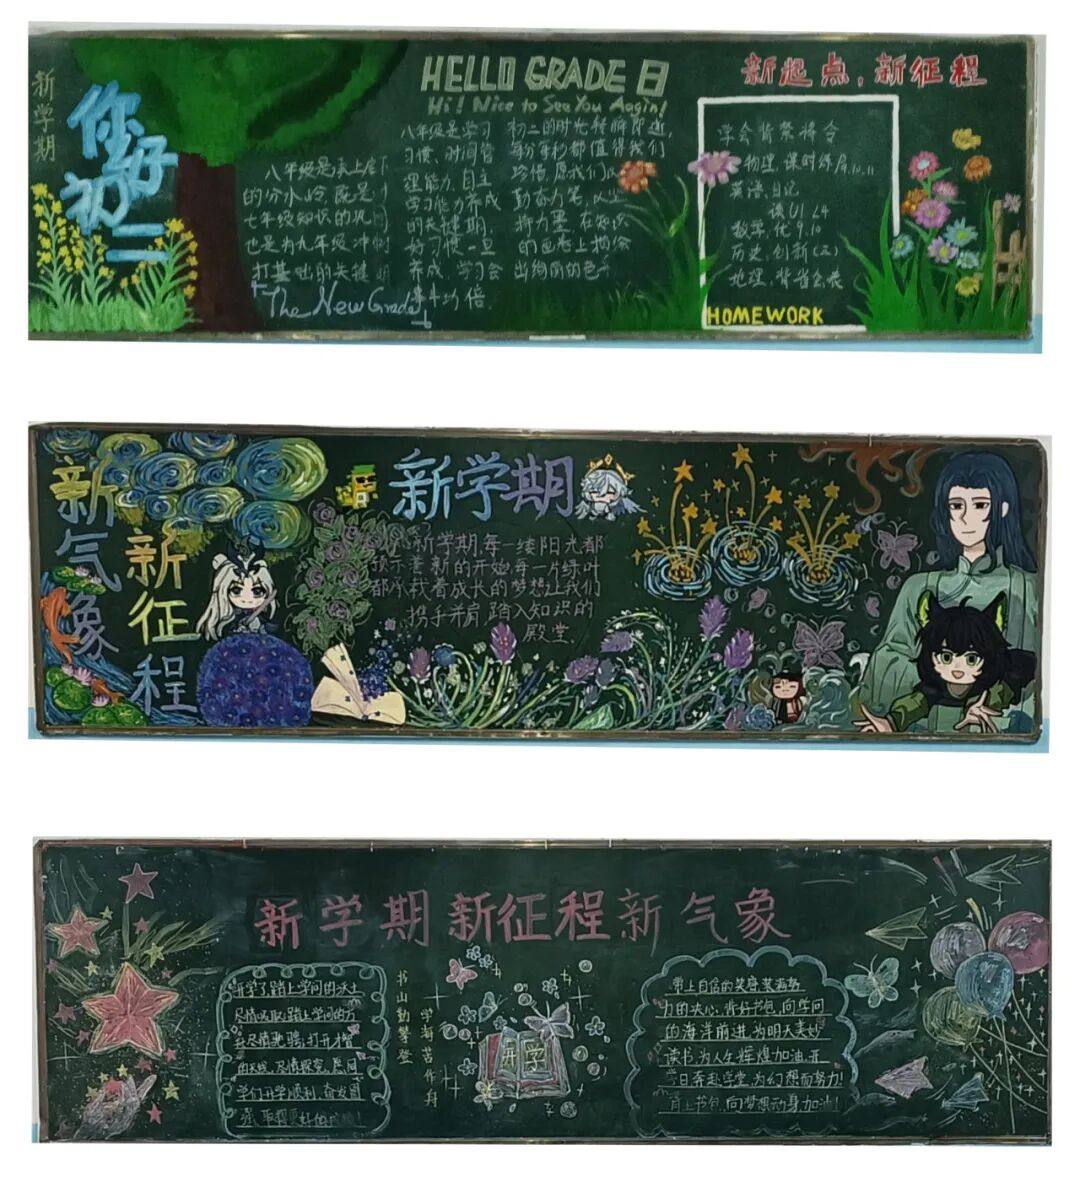 新学期
你好
初二
八年级是承上启下
的分水岭既是
七年级知识的巩
也是为九年级冲
打基础的关键
The New Grade
HELLO GRADE 日
Hi! Nice to See You Aagin!
八年级是学习
习惯、时间管
理能力、自主
学习能力养成
的关键期,
好习惯一旦
养成,学习会
事半功倍
初二的时光转瞬即逝,
每分每秒都值得我们
珍惜,愿我们以
勤奋为笔,以坚
持为墨,在知识
的画卷上描绘
出绚丽的色
新起点,新征程
物理,课时练
英语,日记
读U1 L4
数学,优9.10
历史,创新(三)
地理,背省会表
HOMEWORK
新气象
新征程
新学期
新学期,每一缕阳光都
预示着新的开始每一片绿叶
都承载着成长的梦想让我们
携手并肩踏入知识的
殿堂
新学期 新征程 新气象
开学了踏上学问的沃土
尽情吸取踏上学问的方
舟尽情驰骋,打开才智
的天线,尽情探究,愿同
学们开学顺利,奋发图
强,取得更好的成绩!
书山勤攀登
学海苦作舟
开学
带上自信的笑容装满努
力的决心,背好书包,向学问
的海洋前进,为明天美妙
读书,为人生辉煌加油,开
学日奔赴学堂,为幻想而努力!
背上书包,向梦想动身加油!